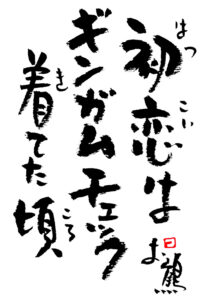 初恋は
ギンガムチェック
着てた頃
はつ
こい
き
ころ